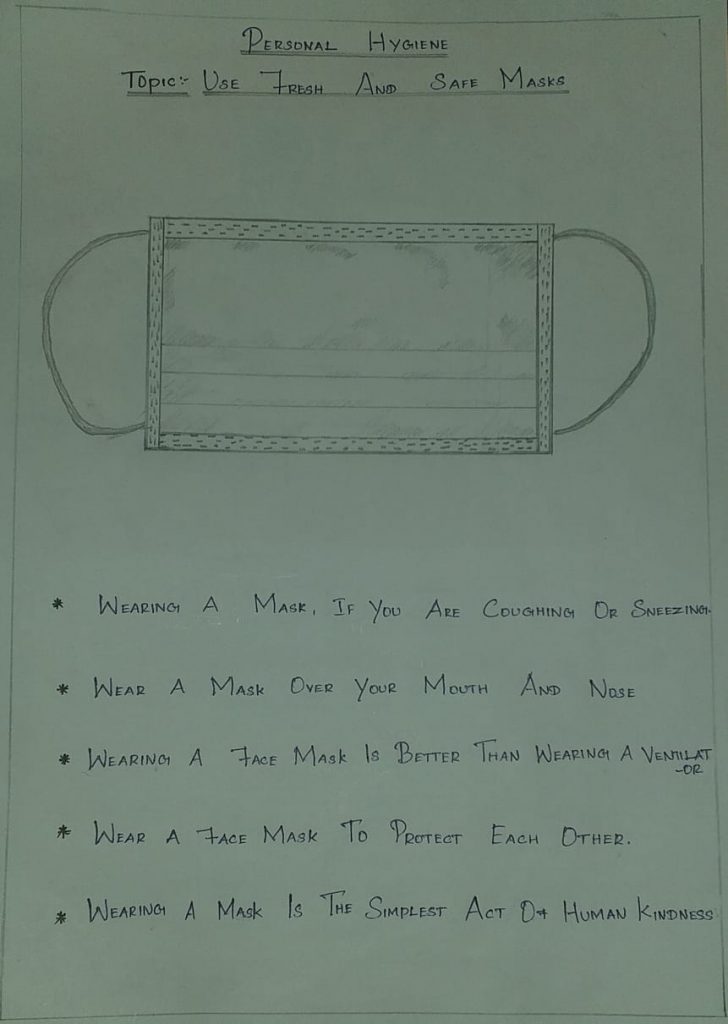 PERSONAL HYGIENE
TOPIC:- USE FRESH AND SAFE MASKS
* WEARING A MASK, IF YOU ARE COUGHING OR SNEEZING.
* WEAR A MASK OVER YOUR MOUTH AND NOSE
* WEARING A FACE MASK IS BETTER THAN WEARING A VENTILAT
-OR
* WEAR A FACE MASK TO PROTECT EACH OTHER.
* WEARING A MASK IS THE SIMPLEST ACT OF HUMAN KINDNESS